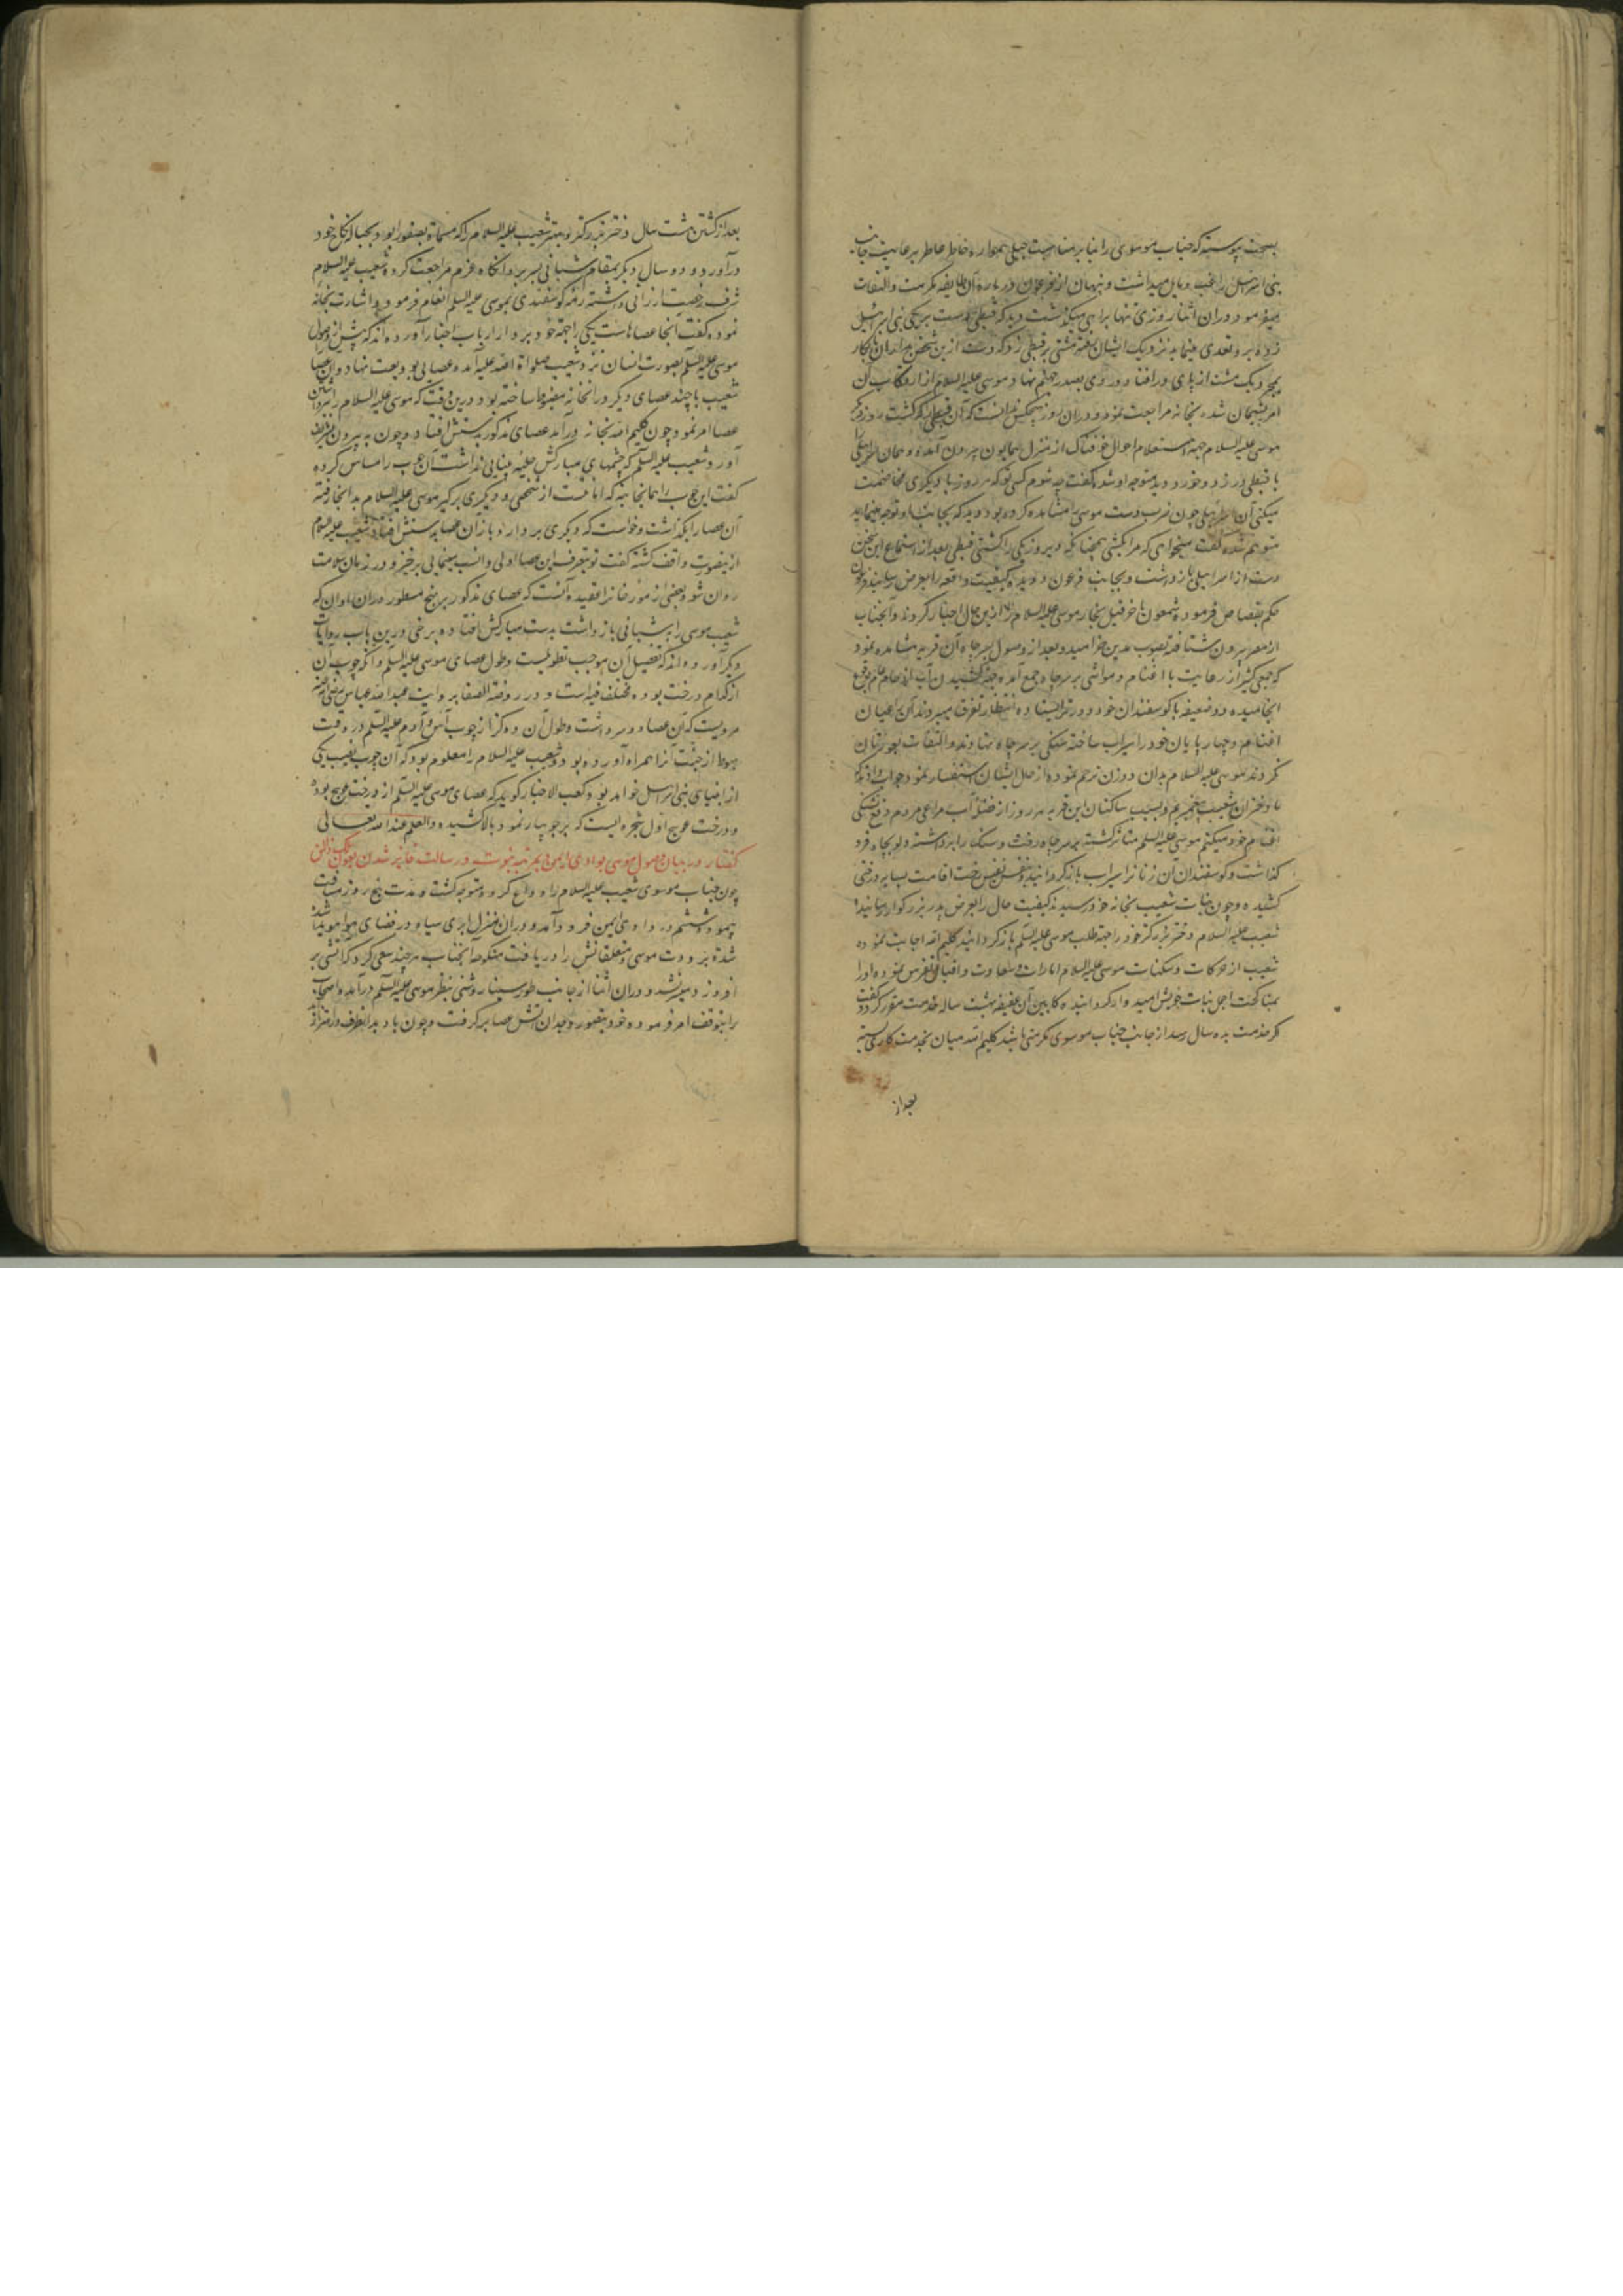 بصحت پیوسته که جناب موسوی را بنابر مناسبت جبلی همواره خاطر عاطر برعایت جانب
بنی اسرائیل راغب و مایل میداشت و پنهان از فرعون درباره آن طایفه مکرمت و التفات
میفرمود در ان اثنا روزی تنها براهی میکذشت دید که قبطی دست بر یکی بنی اسرائیل
زده برو تعدی مینماید نزدیک ایشان رفته مشتی بر قبطی زد که دست ازین شخص بدار ان نابکار
بمجرد یک مشت از پای درافتاد و روی بصدر جهنم نهاد موسی علیه السلام از ارتکاب آن
امر پشیمان شده بخانه مراجعت نمود و در ان روز هیچکس ندانست که آن قبطی را که کشت روز دیکر
موسی علیه السلام جهة استعلام احوال از منزل همایون بیرون آمده و همان اسرائیلی را
با قبطی در زد و خورد دید متوجه او شد و کفت چه شوم کسی تو که هر روز با دیکری مخاصمت
میکنی آن اسرائیلی چون ضرب دست موسی را مشاهده کرده بود و دید که بجانب او توجه مینماید
متوهم شده کفت میخواهی که مرا بکشی همچنانکه دیروز یکی را کشتی قبطی بعد از استماع این سخن
دست از اسرائیلی بازداشت و بجانب فرعون دویده کیفیت واقعه را بعرض رسانید و فرعون
حکم بقصاص فرموده شمعون یا خرقیل نجار موسی علیه السلام را ازین حال اخبار کردند و آنجناب
از مصر بیرون شتافته بصوب مدین خرامید و بعد از وصول بسر چاه آن قریه مشاهده نمود
که جمعی کثیر از رعایت با اغنام و مواشی بر سر چاه جمع آمده جهة کشیدن آب ازدحام عام
انجامیده و دو ضعیفه با کوسفندان خود دورتر ایستاده انتظار تفرق میبردند آن راعیان
اغنام و چهارپایان خود را سیراب ساخته سنکی بر سر چاه نهادند و التفات بعورتان
نکردند موسی علیه السلام بدان دو زن ترحم نموده از حال ایشان استفسار نمود جواب دادند که
ما دختران شعیب پیغمبریم و بسبب ساکنان این قریه هر روز از فضله آب مراعی مردم دفع تشنکی
اغنام خود میکنیم موسی علیه السلم متاثر کشته بر سر چاه رفت و سنک را برداشته دلو بچاه فرو
کذاشت و کوسفندان آن زنانرا سیراب بازکردانید و بنفس نفیس رخت اقامت بسایه درختی
کشیده و چون بنات شعیب بخانه خود رسیدند کیفیت حال را بعرض پدر بزرکوار رسانیدند
شعیب علیه السلام دختر بزرکتر خود را جهة طلب موسی علیه السلم بازکردانید کلیم الله اجابت نموده
شعیب از حرکات و سکنات موسی علیه السلام امارات سعادت و اقبال تفرس نموده او را
بمناکحت اجمل بنات خویش امیدوار کردانیده کابین آن عفیفه هشت ساله خدمت مقرر کرد و کفت
کر خدمت بده سال رسد از جانب جناب موسوی مکرمتی باشد کلیم الله میان بخدمتکاری بسته
بعد از
بعد از کذشتن هشت سال دختر بزرکتر و بهتر شعیب علیه السلام را که مسماة بصفورا بود بحباله نکاح خود
درآورد و دو سال دیکر بمقام شبانی بسر برد انکاه عزم مراجعت کرده شعیب علیه السلام
شرف رخصت ارزانی داشته رمه کوسفندی بموسی علیه السلم انعام فرمود و اشارت بخانه
نموده کفت آنجا عصاهاست یکی را جهة خود بردار ارباب اخبار آورده اند که پیش از وصول
موسی علیه السلم بصورت انسان نزد شعیب صلواة الله علیه آمده عصایی بودیعت نهاد و ان عصا
شعیب با چند عصای دیکر در انخانه مضبوط ساخته بود درین وقت که موسی علیه السلام را
عصا امر نمود چون کلیم الله بخانه درآمد عصای مذکور بدستش افتاد و چون به بیرون تشریف
آورد و شعیب علیه السلم که چشمهای مبارکش حلیه بینایی نداشت آن چوب را مساس کرده
کفت این چوب را همانجا بنه که امانت است از شخصی و دیکری برکیر موسی علیه السلام بدانجا رفته
آن عصا را بکذاشت و خواست که دیکری بردارد باز ان عصا بدستش افتاد شعیب علیه السلام
ازینصورت واقف کشته کفت تو بتصرف این عصا اولی و انسب مینمایی برخیز و در زمان سلامت
روان شو و بعضی از مورخانرا عقیده آنست که عصای مذکور بر نهج مسطور در ان اوان که
شعیب موسی را بشبانی بازداشت بدست مبارکش افتاده و برخی درین باب روایات
دیکر آورده اند که تفصیل آن موجب تطویلست و طول عصای موسی علیه السلم و انکه چوب آن
از کدام درخت بوده مختلف فیه است و در روضة الصفا بروایت عبد الله عباس رضی الله عنه
مرویست که آن عصا دو سر داشت و طول آن ده کز از چوب آس و آدم علیه السلم در وقت
هبوط از جنت آنرا همراه آورده بود و شعیب علیه السلام را معلوم بود که آن چوب نصیب یکی
از انبیای بنی اسرائیل خواهد بود و کعب الاخبار کوید که عصای موسی علیه السلم از درخت عوسج بوده
و درخت عوسج اول شجره ایست که بر جویبار نمود و بالا کشیده و العلم عند الله تعالی
کفتار در بیان وصول موسی بوادی ایمن و بمرتبه نبوت و رسالت فایز شدن بعون ملک ذوالمنن
چون جناب موسوی شعیب علیه السلام را وداع کرده متوجه کشت و مدت پنج روز مسافت
پیمود ششم در وادی ایمن فرود آمد و در ان منزل ابری سیاه در فضای هوا هویدا شده
شدة برودت موسی و متعلقانش را دریافت منکوحه آنجناب هر چند سعی کرد که آتشی بر
افروزد میسر نشد و در ان اثنا از جانب طور سینا روشنی بنظر موسی علیه السلم درآمده اصحاب
را بتوقف امر فرموده خود بتصور وجدان آتش عصا برکرفت و چون باد بدانطرف در اهتزاز